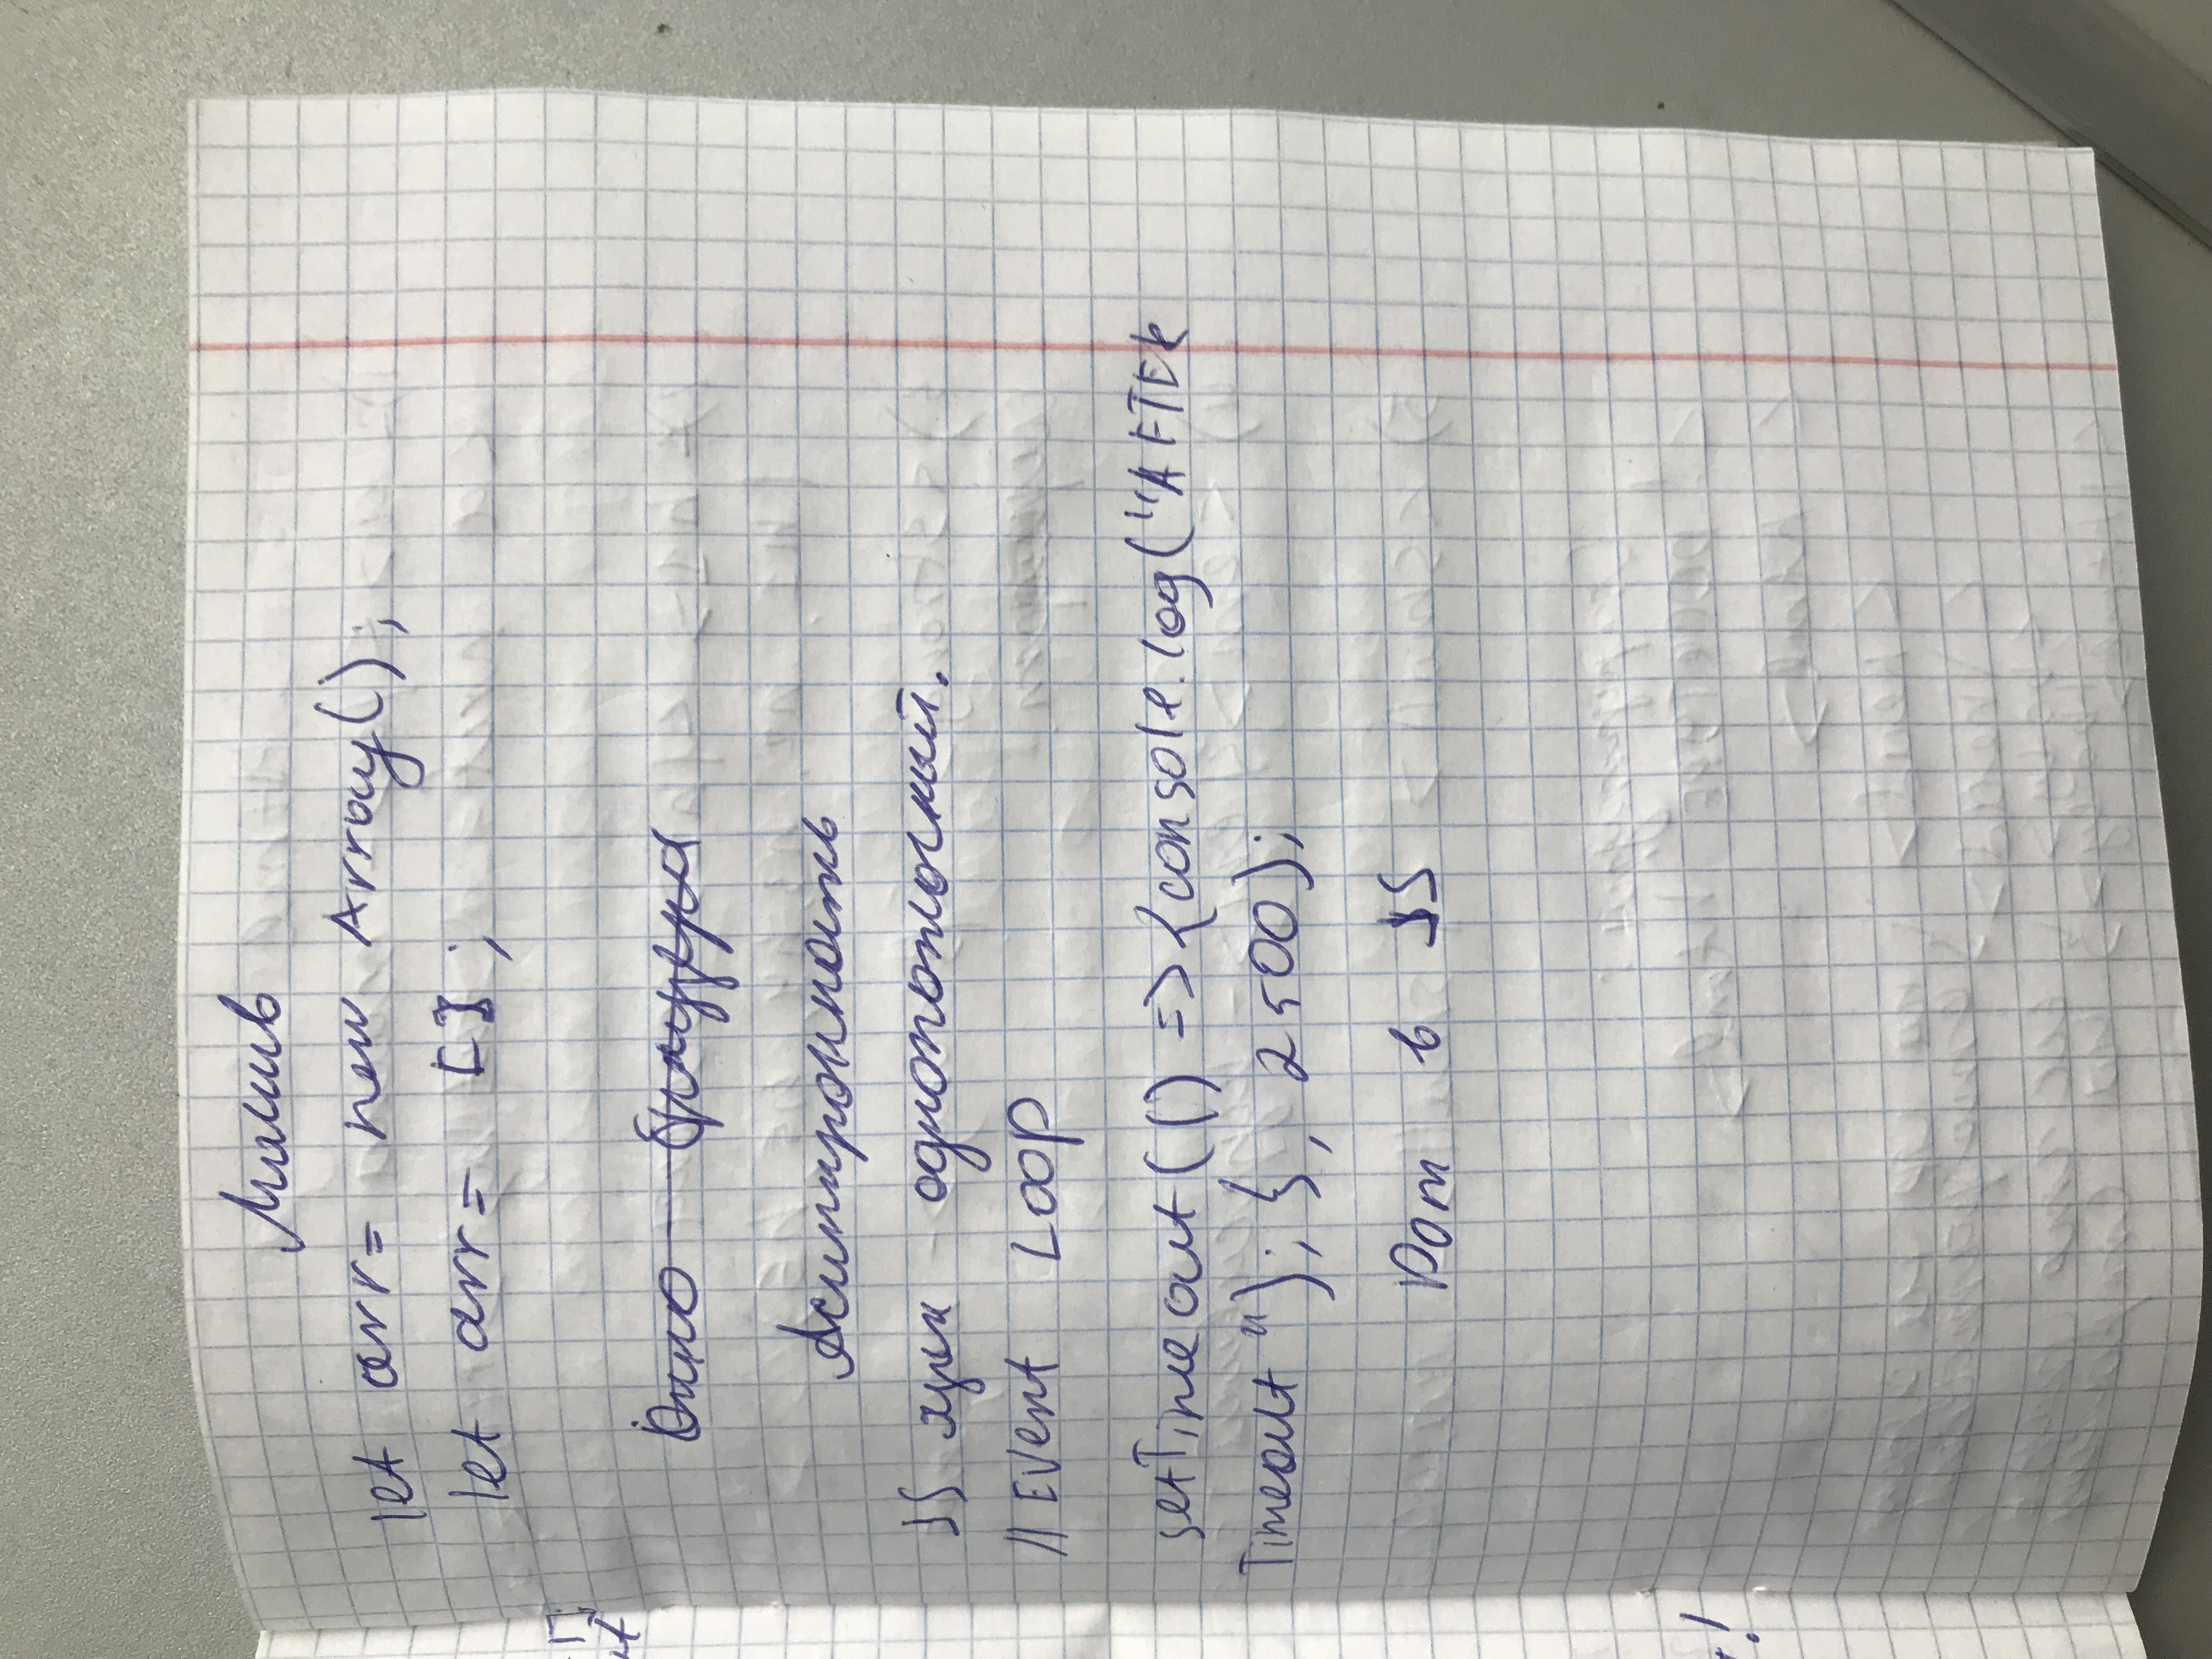 Массив
let arr = new Array();
let arr = [];
Окно браузера
Асинхронность
JS язык однопоточный.
// Event Loop
setTimeout(() => {console.log("AFTER
Timeout"); }, 2500);
Dom в JS